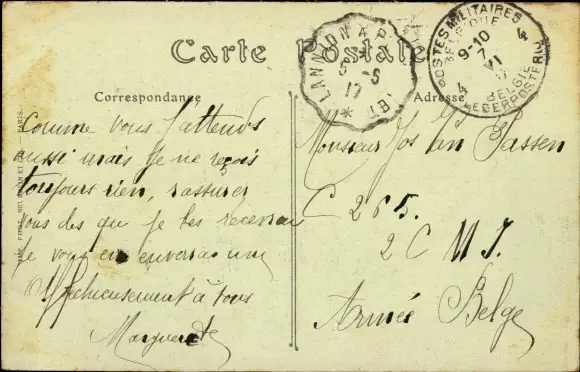 Carte Postale
Correspondance
Adresse
LANNION A P
5-6
17
(B)
POSTES MILITAIRES
BELGIQUE
4
9-10
7
VI
17
4
BELGIE
LEGERPOSTERIJ
Comme vous j'attends
aussi mais je ne reçois
toujours rien, rassurez
vous dès que je les recevrai
je vous en enverrais une
Affectueusement à tous
Marguerite
Monsieur Jos Van Passen
C 265.
2 C M I.
Armée Belge
PARIS.